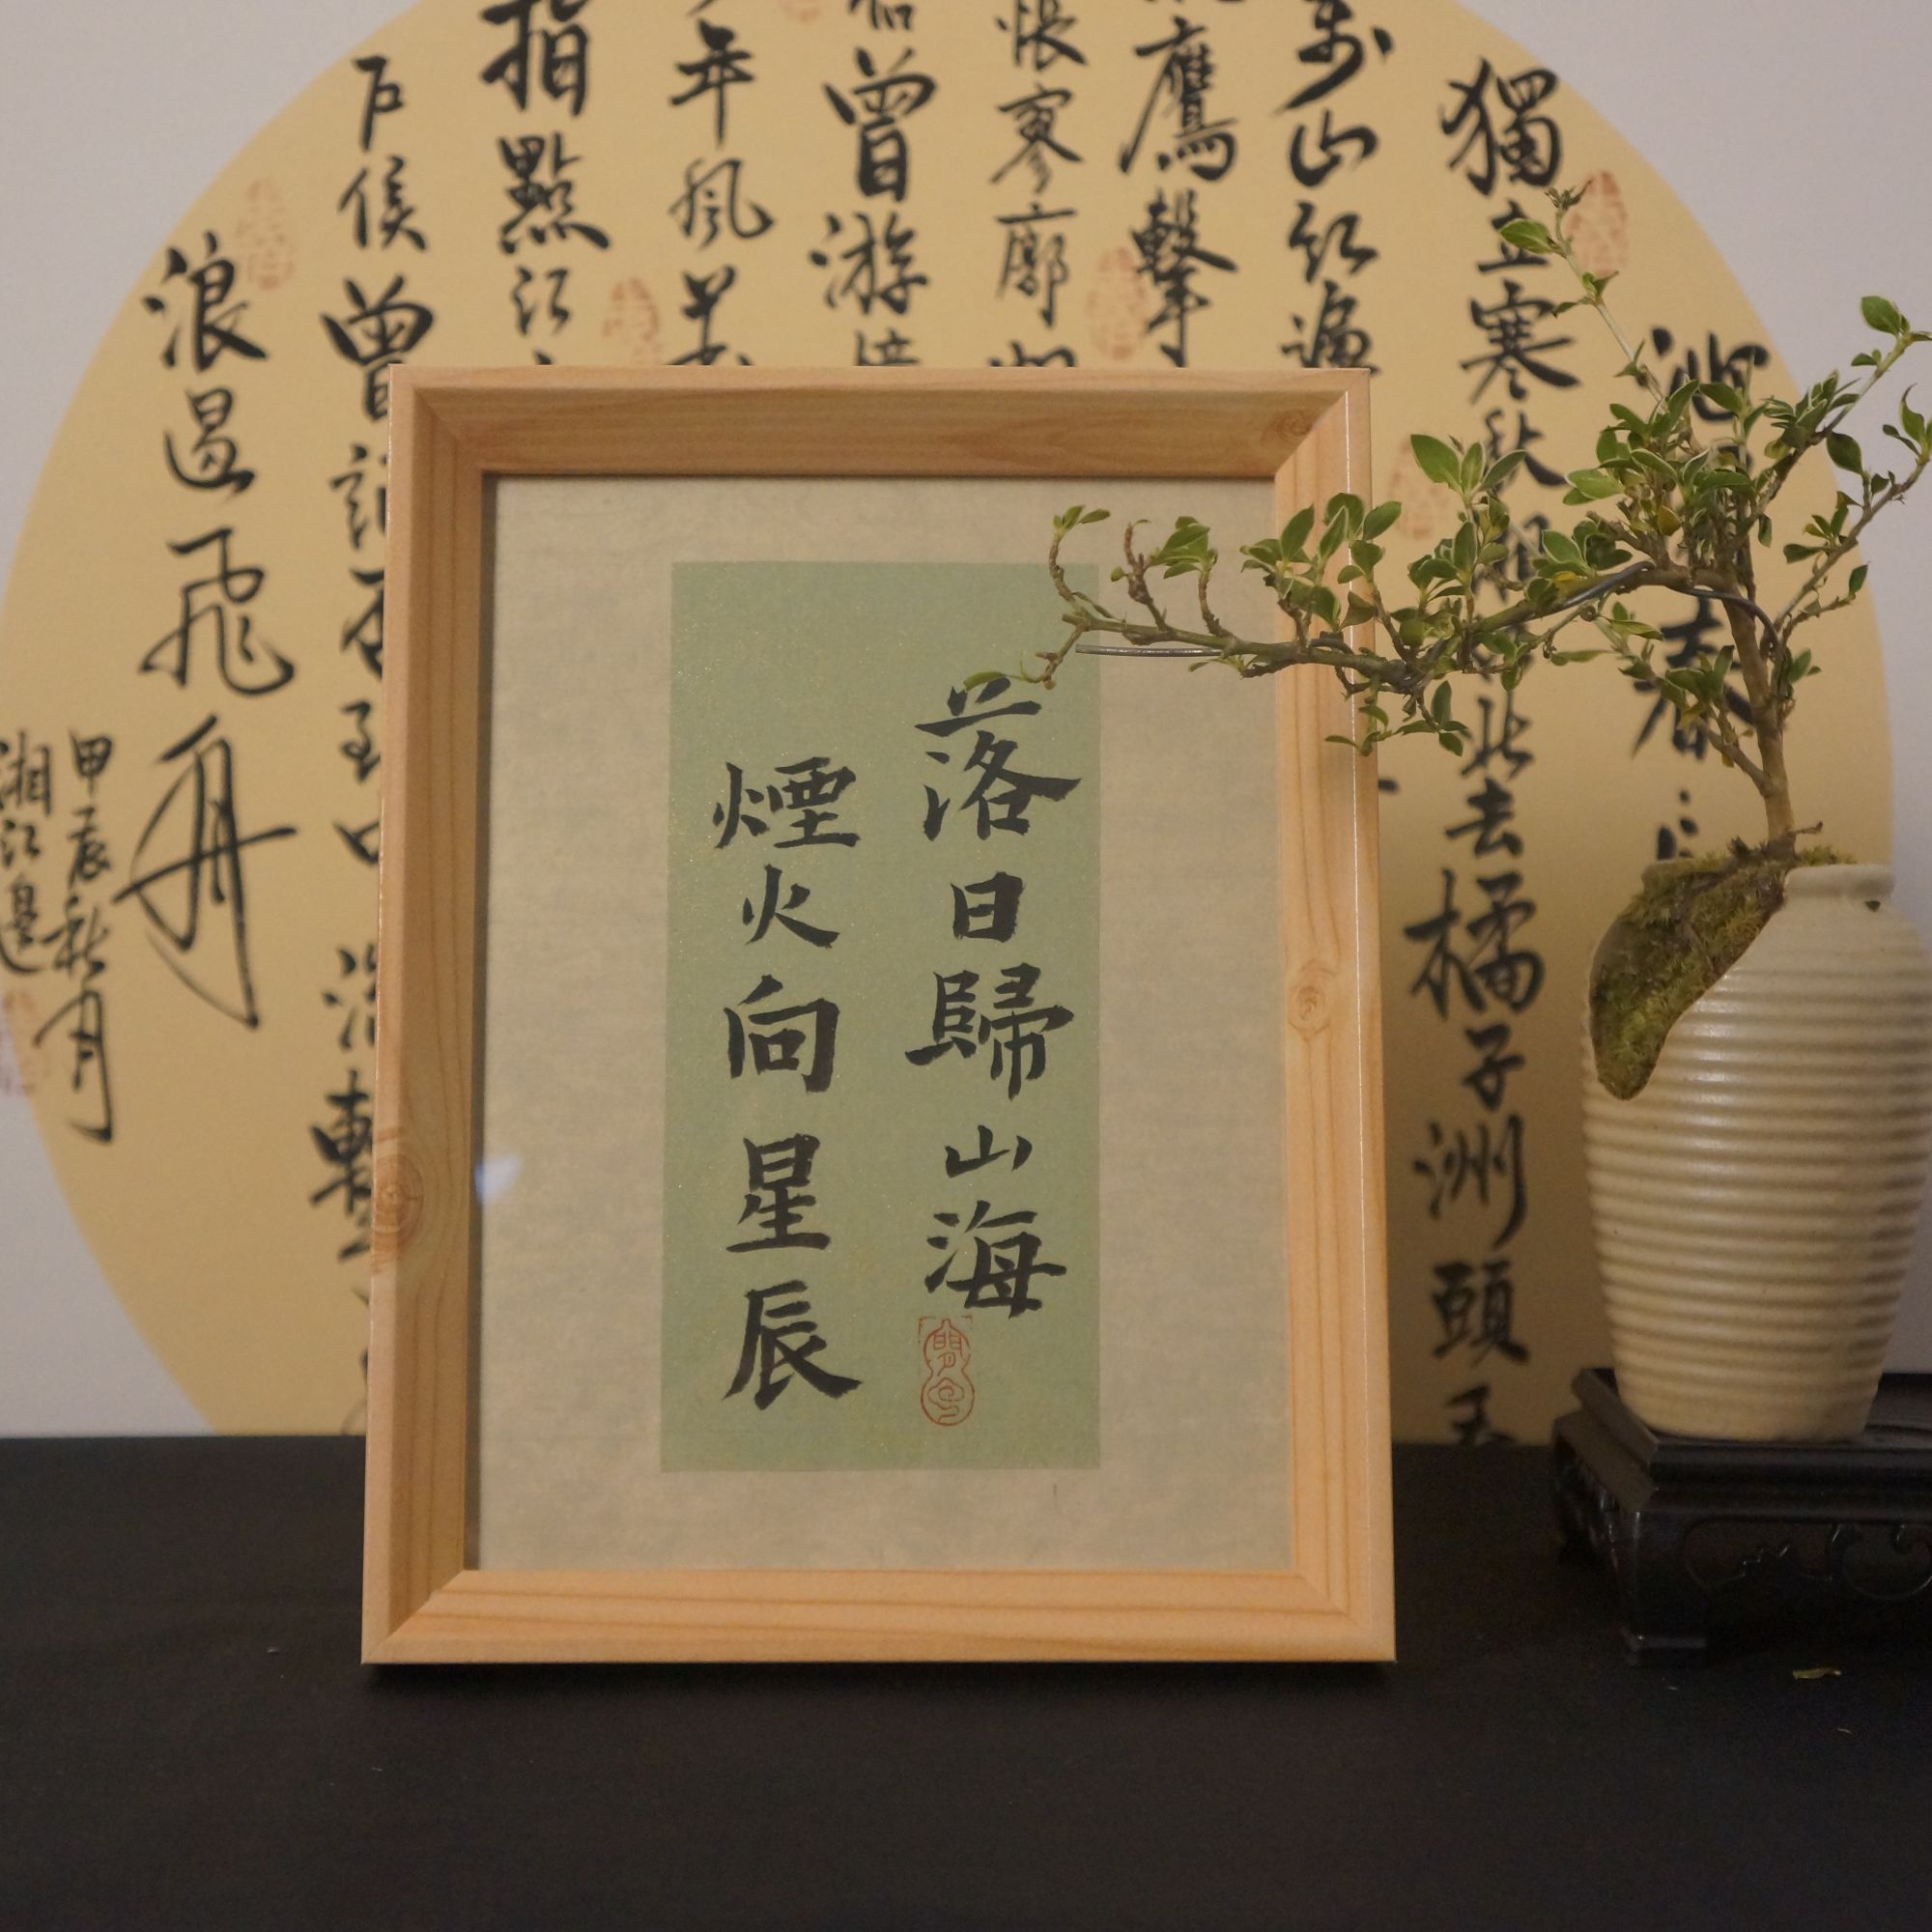 落日歸山海
煙火向星辰
沁
春
獨立寒秋湘
北去橘子洲頭
萬山紅遍
鷹擊
悵寥廓
曾游
年風華
指點江
戶侯曾記否到
浪遏飛舟
甲辰秋月
湘江邊